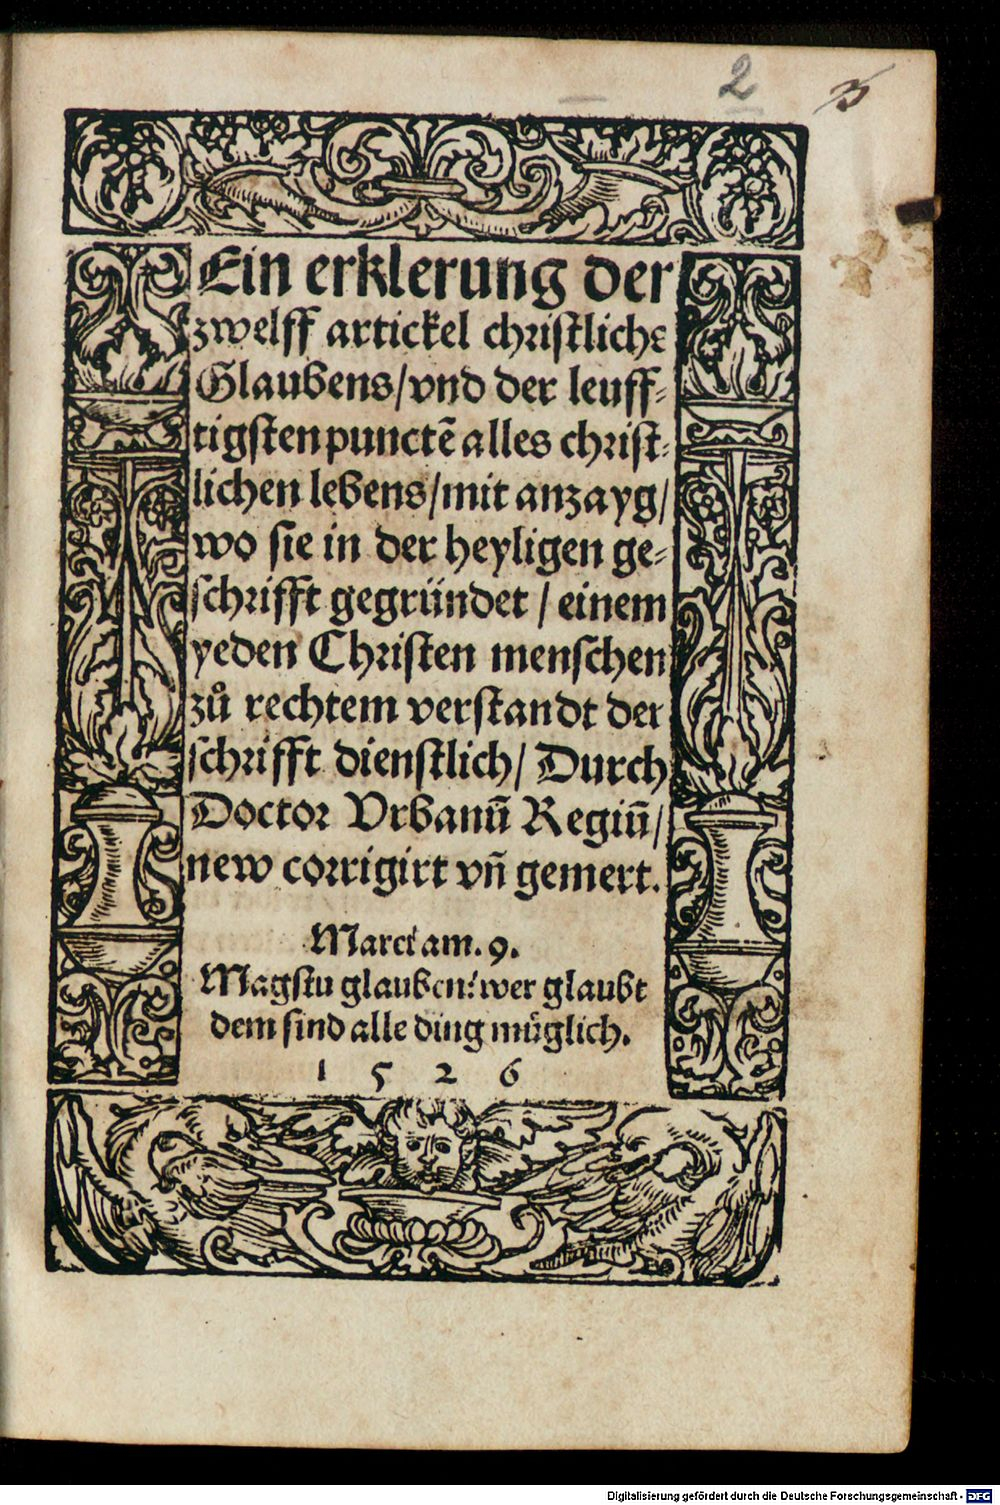 2
3
Ein erklerung der
zwelff artickel christliche
Glaubens/vnd der leuff⸗
tigsten punctẽ alles christ⸗
lichen lebens/mit anzayg/
wo sie in der heyligen ge⸗
schrifft gegründet / einem
yeden Christen menschen
zů rechtem verstandt der
schrifft dienstlich/ Durch
Doctor Vrbanũ Regiũ/
new corrigirt vñ gemert.
Marci am. 9.
Magstu glauben: wer glaubt
dem sind alle ding müglich.
1 5 2 6
Digitalisierung gefördert durch die Deutsche Forschungsgemeinschaft - DFG